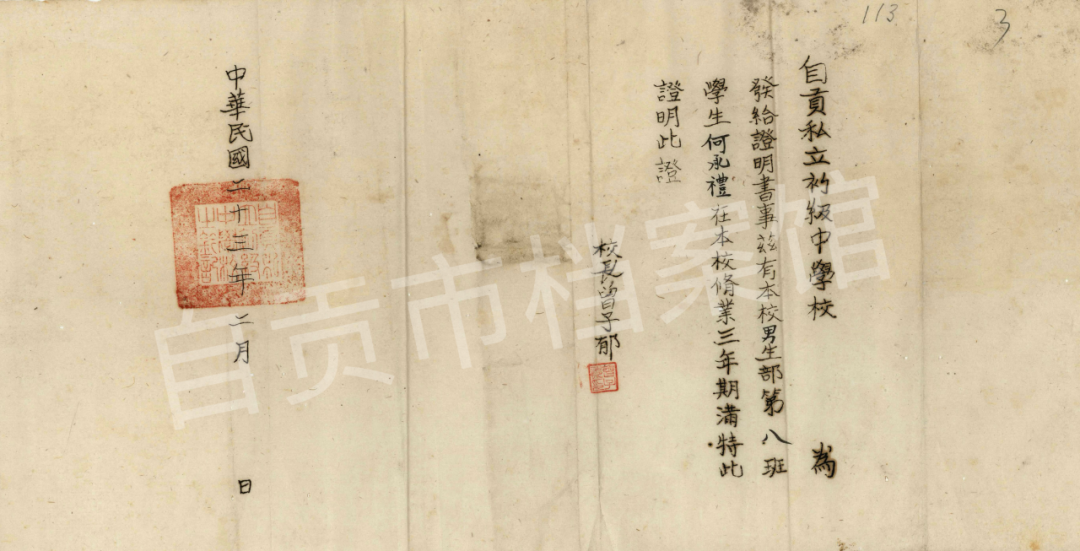 3
113
自貢私立初級中學校 為
發給證明書事茲有本校男生部第八班
學生何永禮在本校脩業三年期滿特此
證明此證
校長曾子郁
中華民國二十三年二月 日
自贡市档案馆